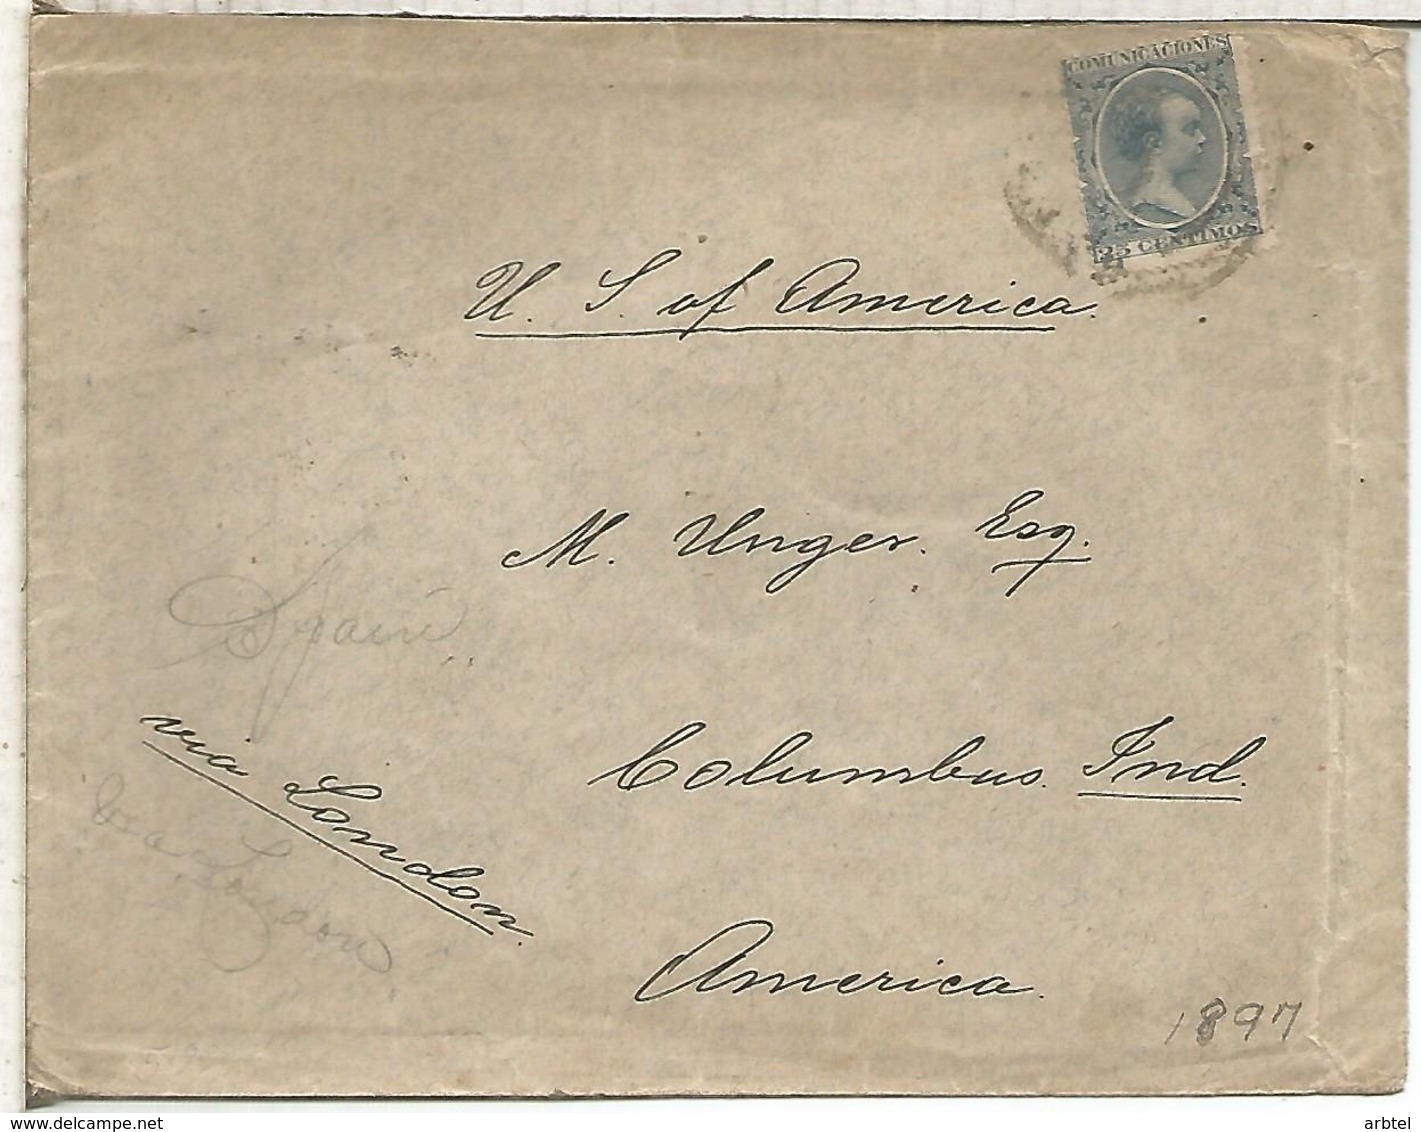 COMUNICACIONES
25 CENTIMOS
U. S. of America.
M. Unger. Esq.
Spain
via London.
Columbus. Ind.
via London
America.
1897
www.delcampe.net
arbtel